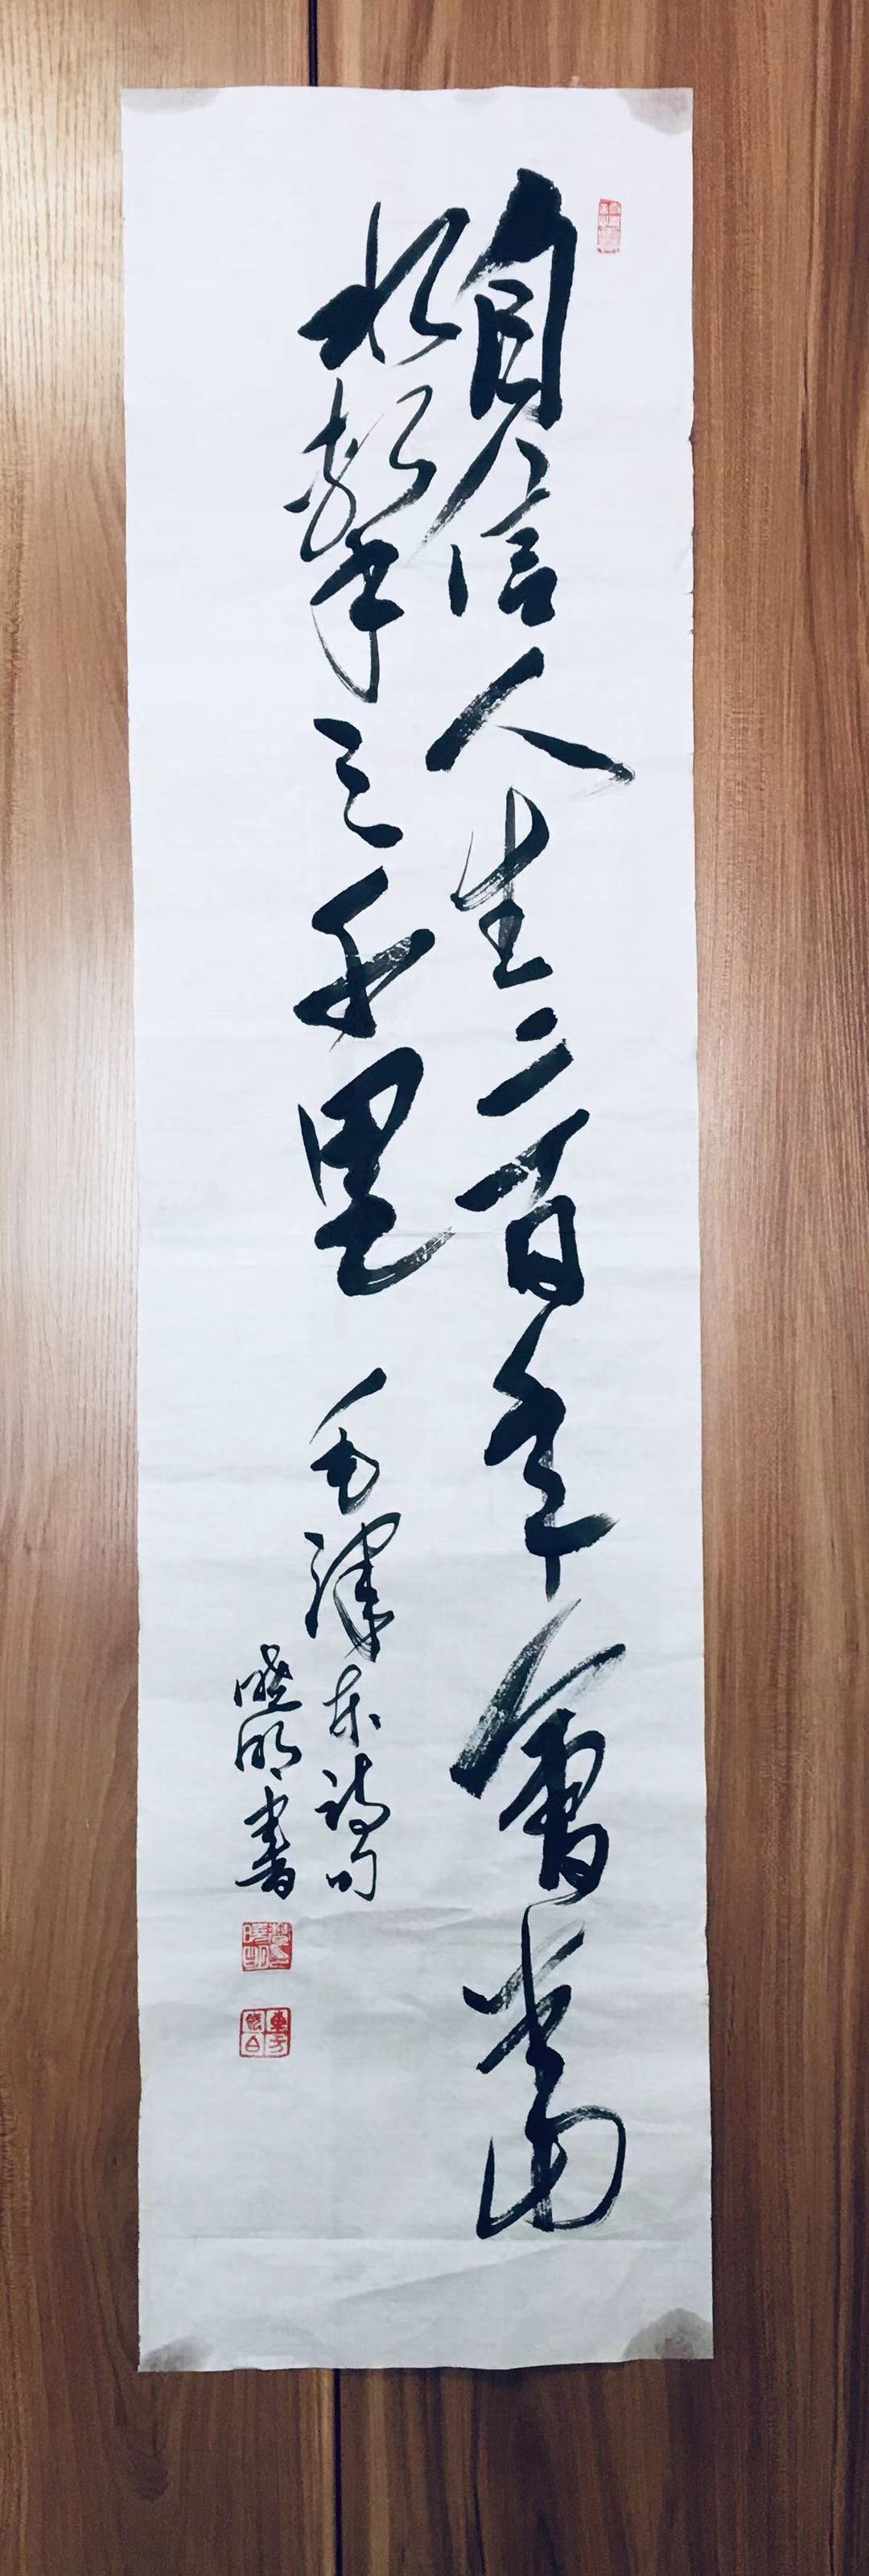 自信人生二百年会当
水击三千里 毛泽东诗句
晓明书